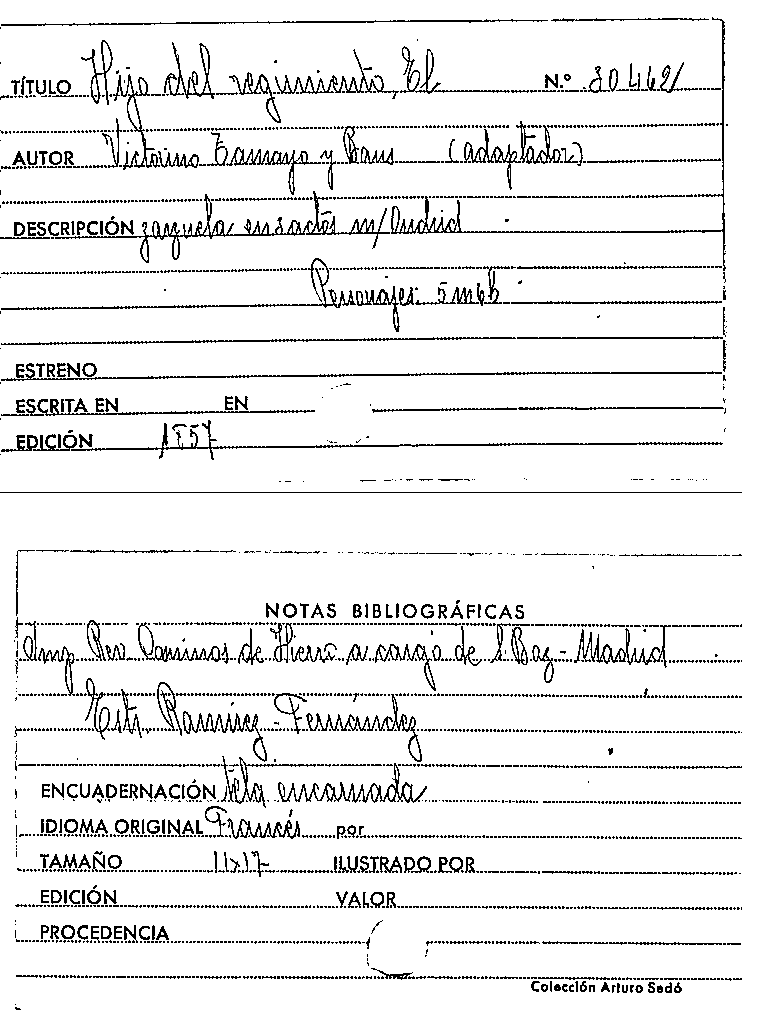 TÍTULO Hijo del regimiento, El N.º 30469/
AUTOR Victorino Tamayo y Baus (adaptador)
DESCRIPCIÓN zarzuela en 3 actos m/Oudrid
Personajes: 5 m 6 h
ESTRENO
ESCRITA EN EN
EDICIÓN 1857
NOTAS BIBLIOGRÁFICAS
Imp Rev Caminos de Hierro a cargo de Baz - Madrid
Ramírez - Fernández
ENCUADERNACIÓN tela encarnada
IDIOMA ORIGINAL Francés por
TAMAÑO 11x17 ILUSTRADO POR
EDICIÓN VALOR
PROCEDENCIA
Colección Arturo Sedó